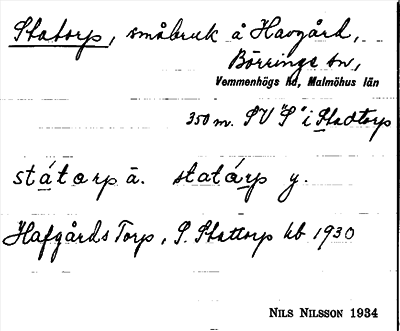 Statorp, småbruk å Havgård,
Börrings sn,
Vemmenhögs hd, Malmöhus län
350 m. SV "S" i Stadtorp
státorp ä. statárp y.
Hafgårds Torp, S. Stattorp kb 1930
NILS NILSSON 1934